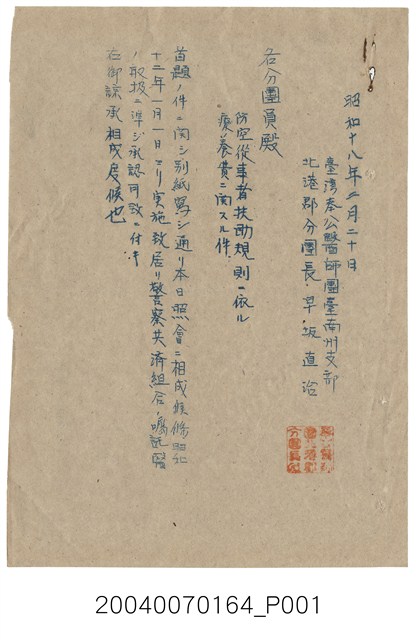 昭和十八年二月二十日
臺灣奉公醫師團臺南州支部
北港郡分團長 早坂直治
各分團員殿
防空從事者扶助規則ニ依ル
療養費ニ関スル件
首題ノ件ニ関シ別紙寫シノ通リ本日照會ニ相成候條昭和
十二年一月一日ヨリ実施致居リ警察共済組合ノ嘱託醫
ノ取扱ニ準ジ承認可致ニ付キ
右御諒承相成度候也
20040070164_P001